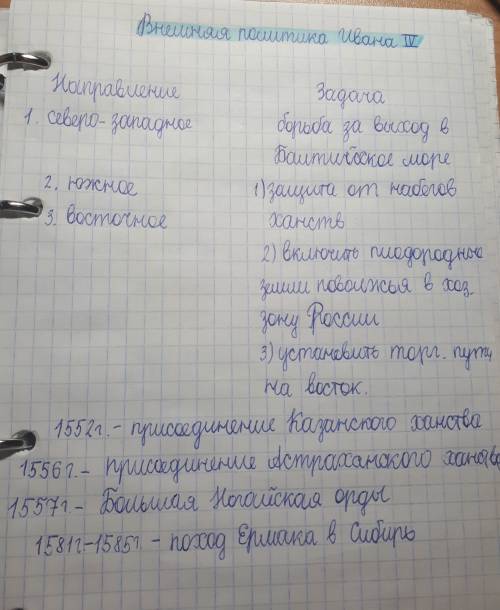 Внешняя политика Ивана IV
Направление Задача
1. северо-западное борьба за выход в
Балтийское море
2. южное 1) защита от набегов
3. восточное ханств
2) включить плодородные
земли поволжья в хоз.
зону России
3) установить торг. пути
на восток.
1552г. - присоединение Казанского ханства
1556г. - присоединение Астраханского ханства
1557г - Большая Ногайская орды
1581г-1585г. - поход Ермака в Сибирь